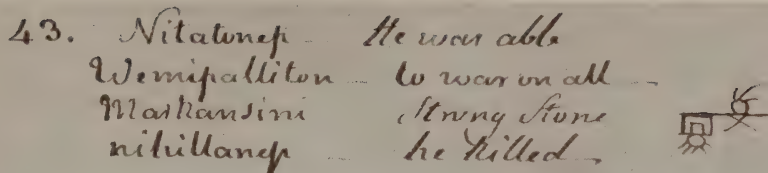 43. Nitatonep He was able
Wemipalliton to war on all
Maskansini Strong Stone
nihillanep he killed